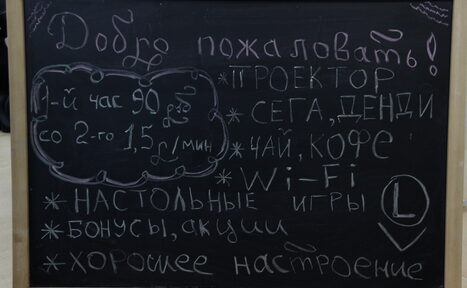 Добро пожаловать!
1-й час 90
со 2-го 1,5 /мин
* ПРОЕКТОР
* СЕГА, ДЕНДИ
* ЧАЙ, КОФЕ
* Wi-Fi
* НАСТОЛЬНЫЕ ИГРЫ
* БОНУСЫ, АКЦИИ
* ХОРОШЕЕ НАСТРОЕНИЕ
L